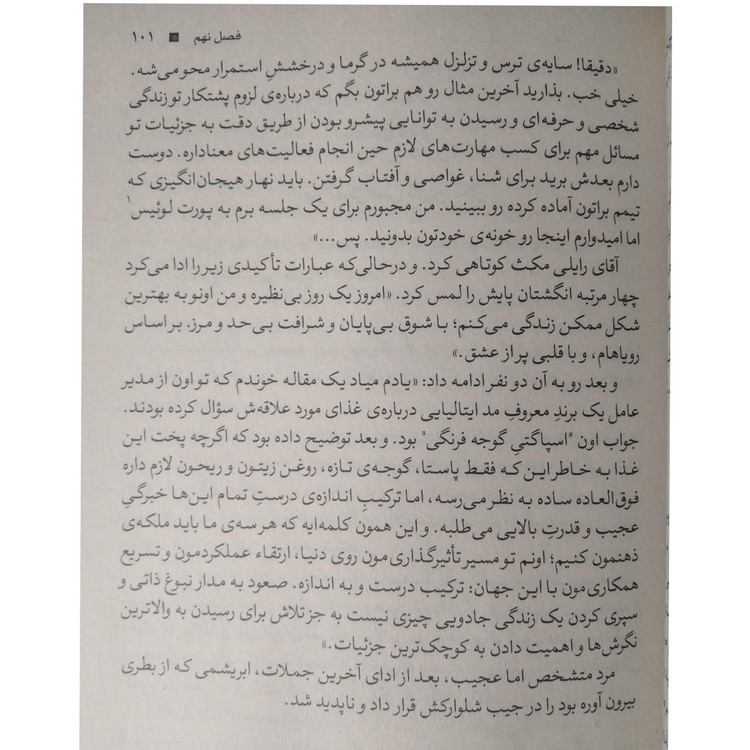 فصل نهم ■ ۱۰۱
«دقیقا! سایه‌ی ترس و تزلزل همیشه در گرما و درخششِ استمرار محو می‌شه.
خیلی خب. بذارید آخرین مثال رو هم براتون بگم که درباره‌ی لزوم پشتکار تو زندگی
شخصی و حرفه‌ای و رسیدن به توانایی پیشرو بودن از طریق دقت به جزئیات تو
مسائل مهم برای کسب مهارت‌های لازم حین انجام فعالیت‌های معناداره. دوست
دارم بعدش برید برای شنا، غواصی و آفتاب گرفتن. باید نهار هیجان‌انگیزی که
تیمم براتون آماده کرده رو ببینید. من مجبورم برای یک جلسه برم به پورت لوئیس۱
اما امیدوارم اینجا رو خونه‌ی خودتون بدونید. پس...»
آقای رایلی مکث کوتاهی کرد. و درحالی‌که عبارات تأکیدی زیر را ادا می‌کرد
چهار مرتبه انگشتان پایش را لمس کرد. «امروز یک روز بی‌نظیره و من اونو به بهترین
شکل ممکن زندگی می‌کنم؛ با شوق بی‌پایان و شرافت بی‌حد و مرز. بر اساس
رویاهام، و با قلبی پر از عشق.»
و بعد رو به آن دو نفر ادامه داد: «یادم میاد یک مقاله خوندم که تو اون از مدیر
عامل یک برندِ معروفِ مد ایتالیایی درباره‌ی غذای مورد علاقه‌ش سؤال کرده بودند.
جواب اون "اسپاگتیِ گوجه فرنگی" بود. و بعد توضیح داده بود که اگرچه پخت این
غذا به خاطر این که فقط پاستا، گوجه‌ی تازه، روغن زیتون و ریحون لازم داره
فوق‌العاده ساده به نظر می‌رسه، اما ترکیبِ اندازه‌ی درستِ تمام این‌ها خبرگیِ
عجیب و قدرتِ بالایی می‌طلبه. و این همون کلمه‌ایه که هر سه‌ی ما باید ملکه‌ی
ذهنمون کنیم؛ اونم تو مسیر تأثیرگذاری‌مون روی دنیا، ارتقاء عملکردمون و تسریع
همکاری‌مون با این جهان: ترکیب درست و به اندازه. صعود به مدار نبوغ ذاتی و
سپری کردن یک زندگی جادویی چیزی نیست به جز تلاش برای رسیدن به والاترین
نگرش‌ها و اهمیت دادن به کوچک‌ترین جزئیات.»
مرد متشخص اما عجیب، بعد از ادای آخرین جملات، ابریشمی که از بطری
بیرون آوره بود را در جیب شلوارکش قرار داد و ناپدید شد.